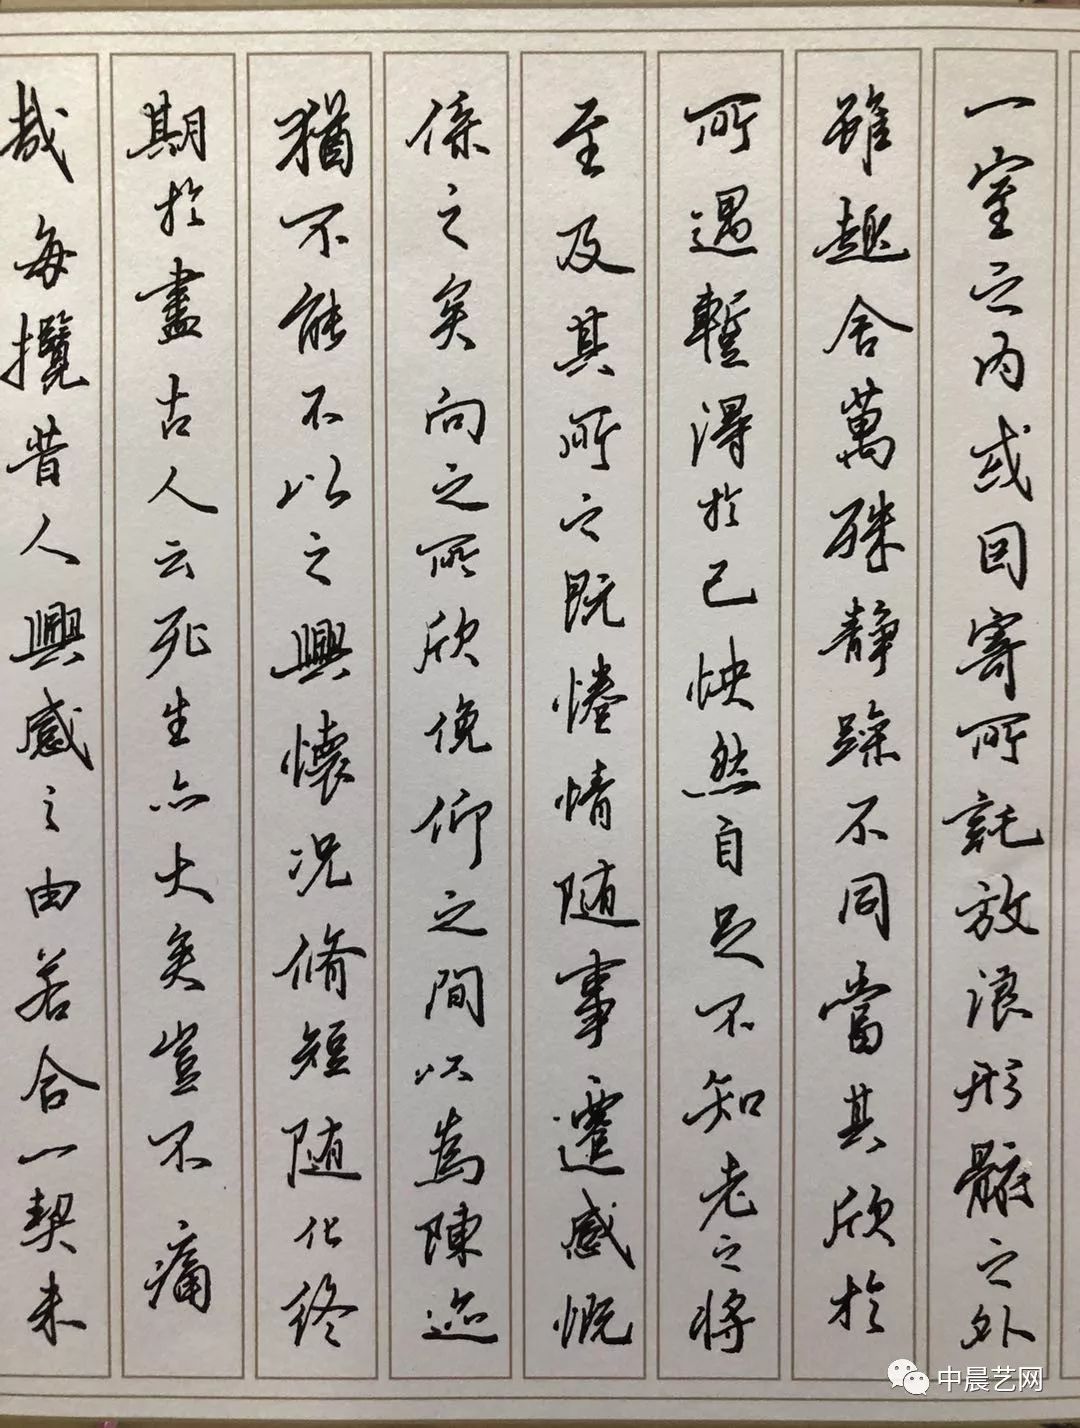 一室之内或因寄所託放浪形骸之外
雖趣舍萬殊静躁不同當其欣於
所遇暫得於己怏然自足不知老之將
至及其所之既惓情随事遷感慨
係之矣向之所欣俛仰之間以為陳迹
猶不能不以之興懷况脩短随化終
期於盡古人云死生亦大矣豈不痛
哉每攬昔人興感之由若合一契未
中晨艺网